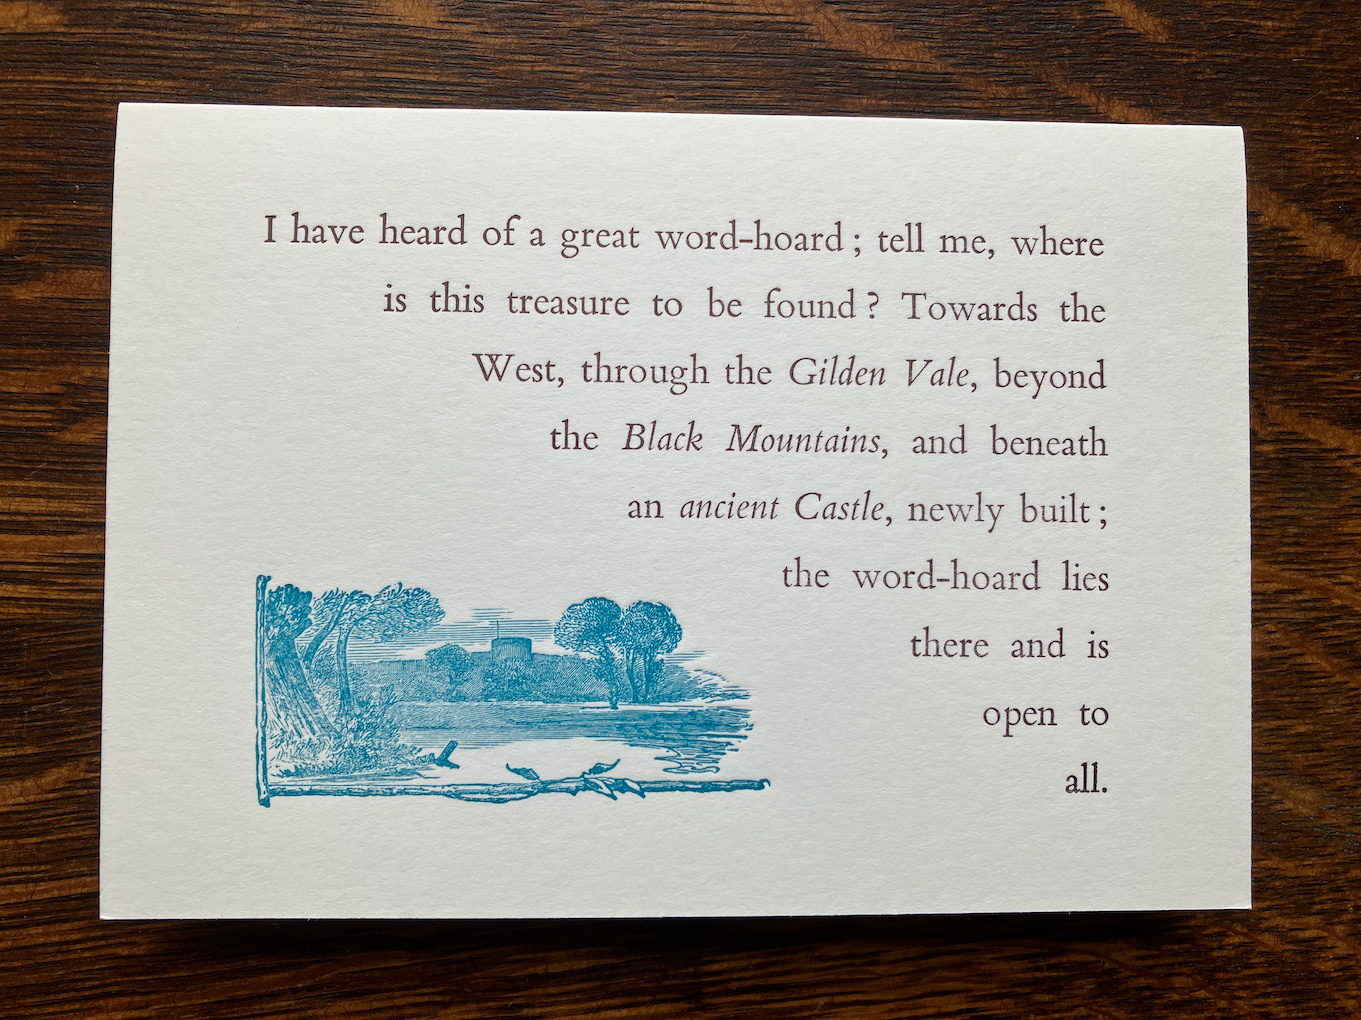 I have heard of a great word-hoard ; tell me, where
is this treasure to be found ? Towards the
West, through the Gilden Vale, beyond
the Black Mountains, and beneath
an ancient Castle, newly built ;
the word-hoard lies
there and is
open to
all.